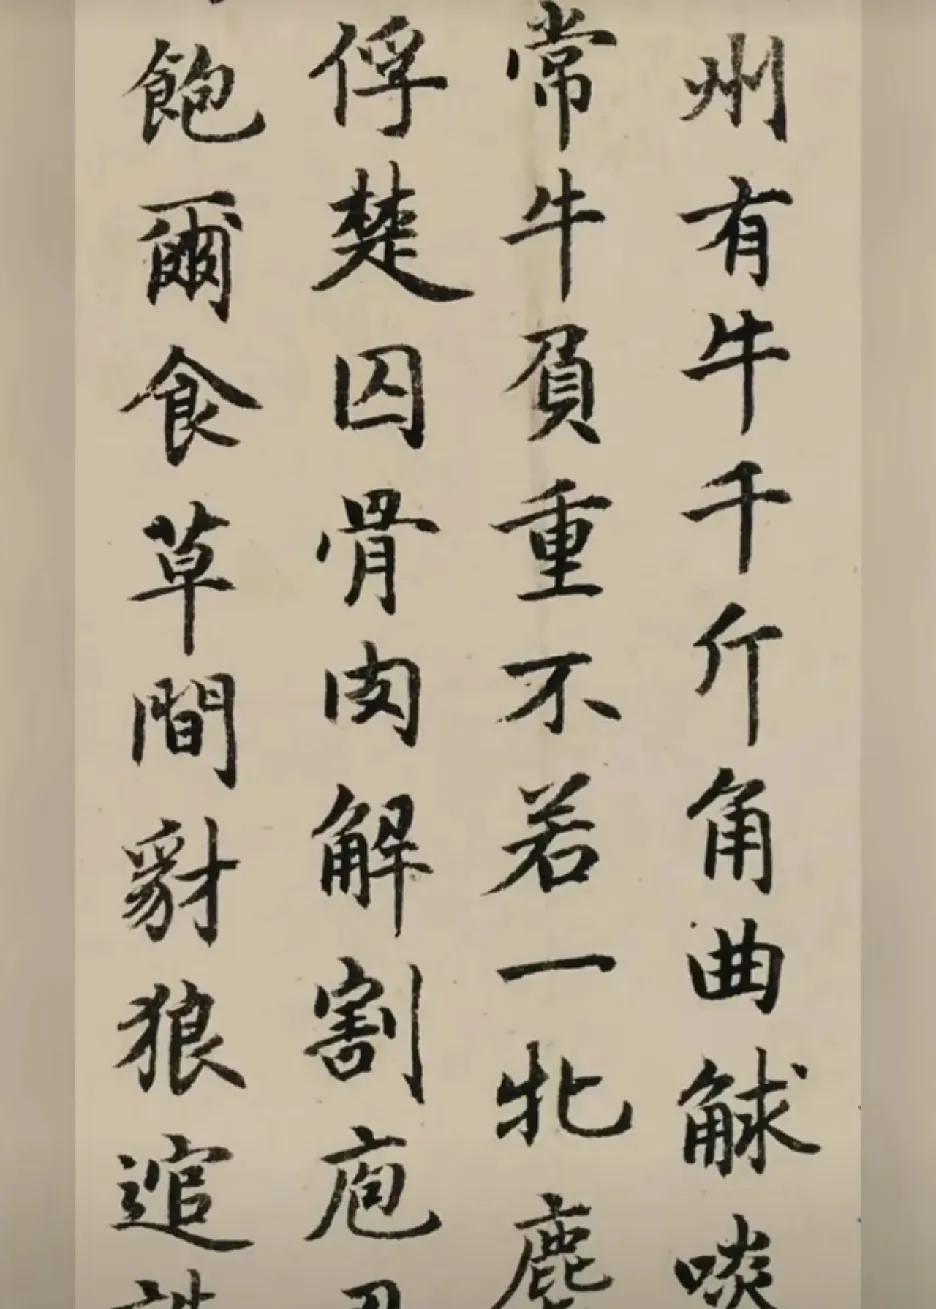 州有牛千斤角曲觩啖
常牛負重不若一牝
俘楚囚骨肉解割庖
飽爾食草間豺狼逭